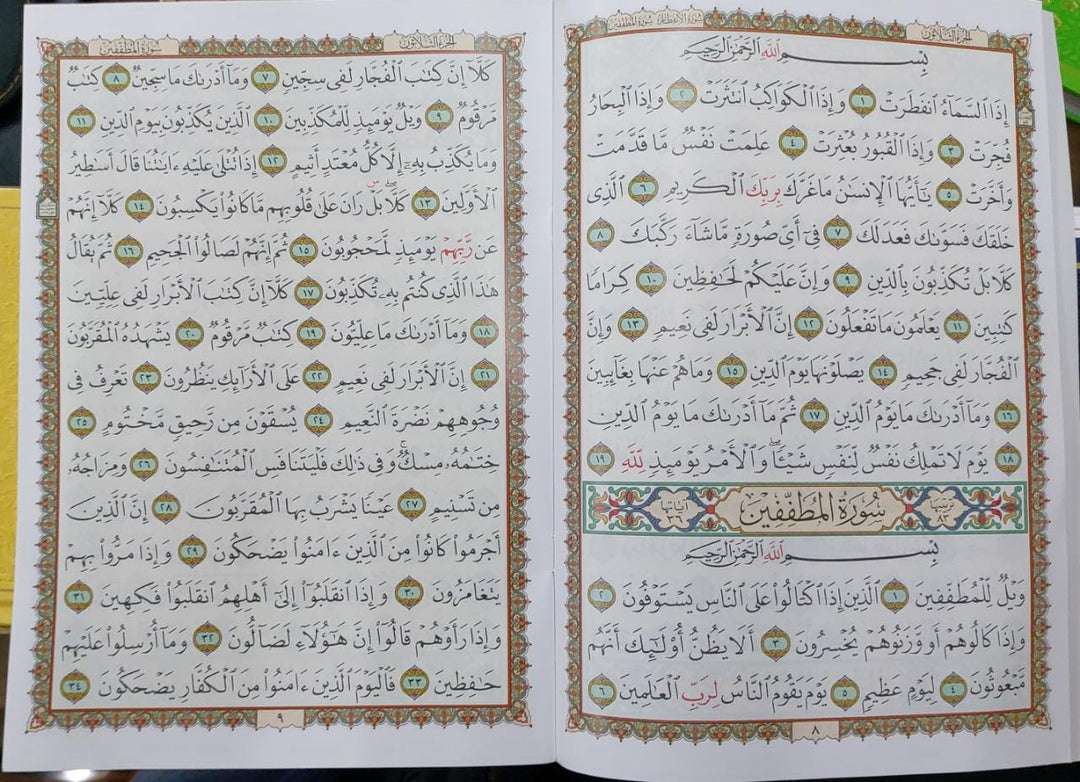 سورة الانفطار سورة المطففين
الجزء الثلاثون
بِسْمِ اللَّهِ الرَّحْمَٰنِ الرَّحِيمِ
إِذَا السَّمَاءُ انفَطَرَتْ ١ وَإِذَا الْكَوَاكِبُ انتَثَرَتْ ٢ وَإِذَا الْبِحَارُ
فُجِّرَتْ ٣ وَإِذَا الْقُبُورُ بُعْثِرَتْ ٤ عَلِمَتْ نَفْسٌ مَّا قَدَّمَتْ
وَأَخَّرَتْ ٥ يَٰأَيُّهَا الْإِنسَٰنُ مَا غَرَّكَ بِرَبِّكَ الْكَرِيمِ ٦ الَّذِي
خَلَقَكَ فَسَوَّىٰكَ فَعَدَلَكَ ٧ فِي أَيِّ صُورَةٍ مَّا شَاءَ رَكَّبَكَ ٨
كَلَّا بَلْ تُكَذِّبُونَ بِالدِّينِ ٩ وَإِنَّ عَلَيْكُمْ لَحَٰفِظِينَ ١٠ كِرَامًا
كَٰتِبِينَ ١١ يَعْلَمُونَ مَا تَفْعَلُونَ ١٢ إِنَّ الْأَبْرَارَ لَفِي نَعِيمٍ ١٣ وَإِنَّ
الْفُجَّارَ لَفِي جَحِيمٍ ١٤ يَصْلَوْنَهَا يَوْمَ الدِّينِ ١٥ وَمَا هُمْ عَنْهَا بِغَآئِبِينَ
١٦ وَمَا أَدْرَىٰكَ مَا يَوْمُ الدِّينِ ١٧ ثُمَّ مَا أَدْرَىٰكَ مَا يَوْمُ الدِّينِ
١٨ يَوْمَ لَا تَمْلِكُ نَفْسٌ لِّنَفْسٍ شَيْـًٔا ۖ وَالْأَمْرُ يَوْمَئِذٍ لِّلَّهِ ١٩
ترتيبها ٨٣ سُورَةُ الْمُطَفِّفِينَ آياتها ٣٦
بِسْمِ اللَّهِ الرَّحْمَٰنِ الرَّحِيمِ
وَيْلٌ لِّلْمُطَفِّفِينَ ١ الَّذِينَ إِذَا اكْتَالُوا عَلَى النَّاسِ يَسْتَوْفُونَ ٢
وَإِذَا كَالُوهُمْ أَو وَّزَنُوهُمْ يُخْسِرُونَ ٣ أَلَا يَظُنُّ أُولَٰئِكَ أَنَّهُم
مَّبْعُوثُونَ ٤ لِيَوْمٍ عَظِيمٍ ٥ يَوْمَ يَقُومُ النَّاسُ لِرَبِّ الْعَٰلَمِينَ ٦
٨
الجزء الثلاثون
سورة المطففين
كَلَّا إِنَّ كِتَٰبَ الْفُجَّارِ لَفِي سِجِّينٍ ٧ وَمَا أَدْرَىٰكَ مَا سِجِّينٌ ٨ كِتَٰبٌ
مَّرْقُومٌ ٩ وَيْلٌ يَوْمَئِذٍ لِّلْمُكَذِّبِينَ ١٠ الَّذِينَ يُكَذِّبُونَ بِيَوْمِ الدِّينِ ١١
وَمَا يُكَذِّبُ بِهِۦ إِلَّا كُلُّ مُعْتَدٍ أَثِيمٍ ١٢ إِذَا تُتْلَىٰ عَلَيْهِ ءَايَٰتُنَا قَالَ أَسَٰطِيرُ
الْأَوَّلِينَ ١٣ كَلَّا ۖ بَلْ ۜ رَانَ عَلَىٰ قُلُوبِهِم مَّا كَانُوا يَكْسِبُونَ ١٤ كَلَّا إِنَّهُمْ
عَن رَّبِّهِمْ يَوْمَئِذٍ لَّمَحْجُوبُونَ ١٥ ثُمَّ إِنَّهُمْ لَصَالُوا الْجَحِيمِ ١٦ ثُمَّ يُقَالُ
هَٰذَا الَّذِي كُنتُم بِهِۦ تُكَذِّبُونَ ١٧ كَلَّا إِنَّ كِتَٰبَ الْأَبْرَارِ لَفِي عِلِّيِّينَ
١٨ وَمَا أَدْرَىٰكَ مَا عِلِّيُّونَ ١٩ كِتَٰبٌ مَّرْقُومٌ ٢٠ يَشْهَدُهُ الْمُقَرَّبُونَ
٢١ إِنَّ الْأَبْرَارَ لَفِي نَعِيمٍ ٢٢ عَلَى الْأَرَآئِكِ يَنظُرُونَ ٢٣ تَعْرِفُ فِي
وُجُوهِهِمْ نَضْرَةَ النَّعِيمِ ٢٤ يُسْقَوْنَ مِن رَّحِيقٍ مَّخْتُومٍ ٢٥
خِتَٰمُهُۥ مِسْكٌ ۚ وَفِي ذَٰلِكَ فَلْيَتَنَافَسِ الْمُتَنَٰفِسُونَ ٢٦ وَمِزَاجُهُۥ
مِن تَسْنِيمٍ ٢٧ عَيْنًا يَشْرَبُ بِهَا الْمُقَرَّبُونَ ٢٨ إِنَّ الَّذِينَ
أَجْرَمُوا كَانُوا مِنَ الَّذِينَ ءَامَنُوا يَضْحَكُونَ ٢٩ وَإِذَا مَرُّوا بِهِمْ
يَتَغَامَزُونَ ٣٠ وَإِذَا انقَلَبُوا إِلَىٰ أَهْلِهِمُ انقَلَبُوا فَكِهِينَ ٣١
وَإِذَا رَأَوْهُمْ قَالُوا إِنَّ هَٰؤُلَاءِ لَضَالُّونَ ٣٢ وَمَا أُرْسِلُوا عَلَيْهِمْ
حَٰفِظِينَ ٣٣ فَالْيَوْمَ الَّذِينَ ءَامَنُوا مِنَ الْكُفَّارِ يَضْحَكُونَ ٣٤
٩